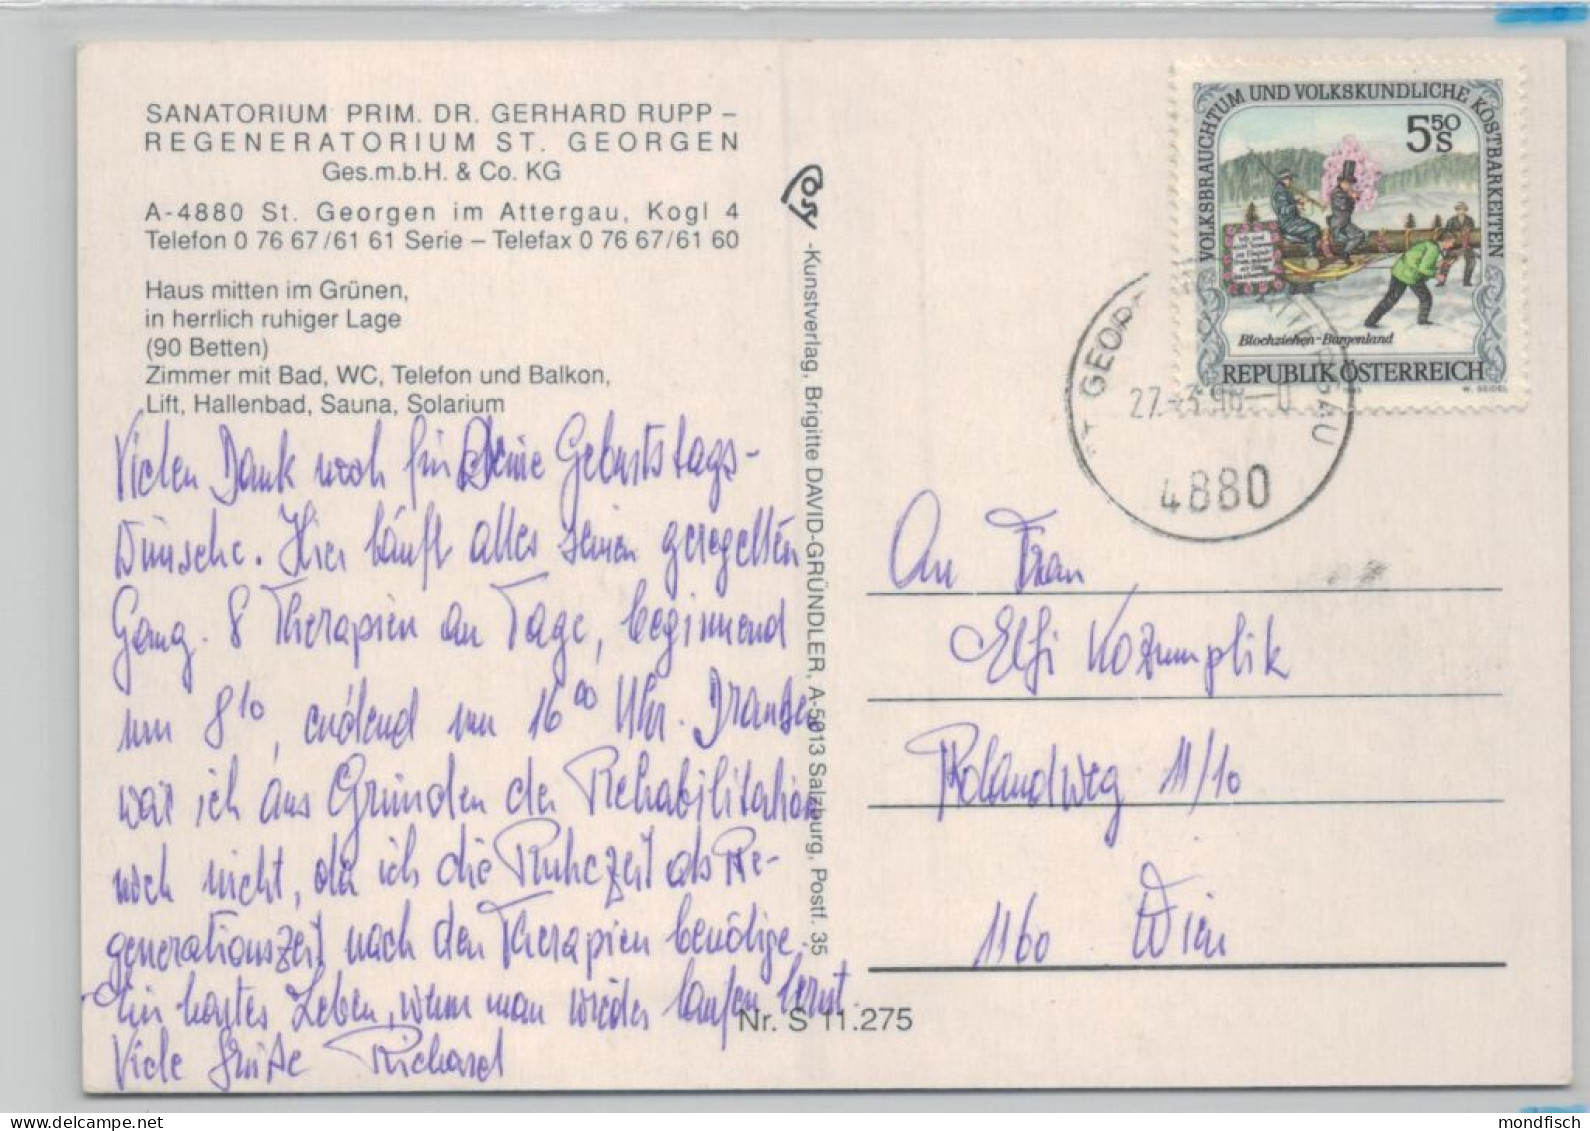 SANATORIUM PRIM. DR. GERHARD RUPP –
REGENERATORIUM ST. GEORGEN
Ges.m.b.H. & Co. KG
A-4880 St. Georgen im Attergau, Kogl 4
Telefon 0 76 67/61 61 Serie – Telefax 0 76 67/61 60
Haus mitten im Grünen,
in herrlich ruhiger Lage
(90 Betten)
Zimmer mit Bad, WC, Telefon und Balkon,
Lift, Hallenbad, Sauna, Solarium
Vielen Dank noch für Deine Geburtstags-
wünsche. Hier läuft alles seinen geregelten
Gang. 8 Therapien am Tage, beginnend
um 8¹⁰, endend um 16⁰⁰ Uhr. Draußen
war ich aus Gründen der Rehabilitation
noch nicht, da ich die Ruhezeit als Re-
generationszeit nach den Therapien benötige.
Ein hartes Leben, wenn man wieder laufen lernt.
Viele Grüße Richard
Cosy
-Kunstverlag, Brigitte DAVID-GRÜNDLER, A-5013 Salzburg, Postf. 35
Nr. S 11.275
VOLKSBRAUCHTUM UND VOLKSKUNDLICHE KOSTBARKEITEN
5⁵⁰ S
Blochziehen-Burgenland
REPUBLIK ÖSTERREICH
W. SEIDEL
ST GEORGEN ATTERGAU
4880
An Frau
Elfi Kozumplik
Rolandweg 11/10
1160 Wien
mondfisch